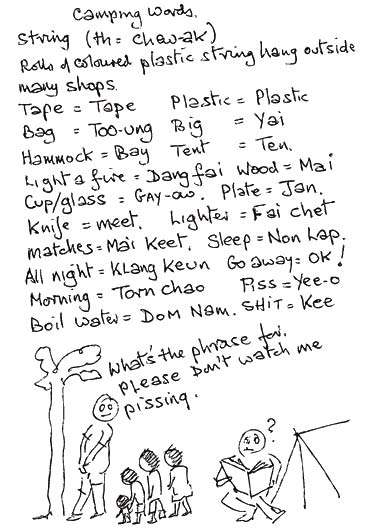 Camping words.
String (th = chew-ak)
Rolls of coloured plastic string hang outside
many shops.
Tape = Tape Plastic = Plastic
Bag = Too-ung Big = Yai
Hammock = Bay Tent = Ten.
Light a fire = Dang fai Wood = Mai
Cup/glass = GAY-ow. Plate = Jan.
Knife = meet. Lighter = Fai chet
matches = Mai Keet. Sleep = Non Lap.
All night = KLang Keun Go away = OK!
Morning = Torn chao Piss = Yee-o
Boil water = DOM NAM. SHIT = Kee
What's the phrase for.
please Don't watch me
pissing.
?